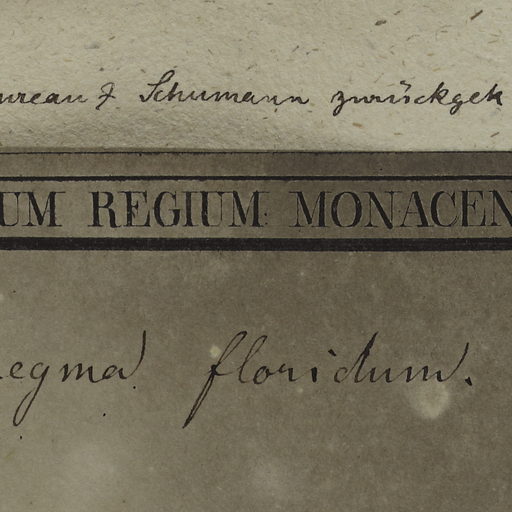 ureau f Schumann zurückgek
UM REGIUM MONACEN
egma floridum.